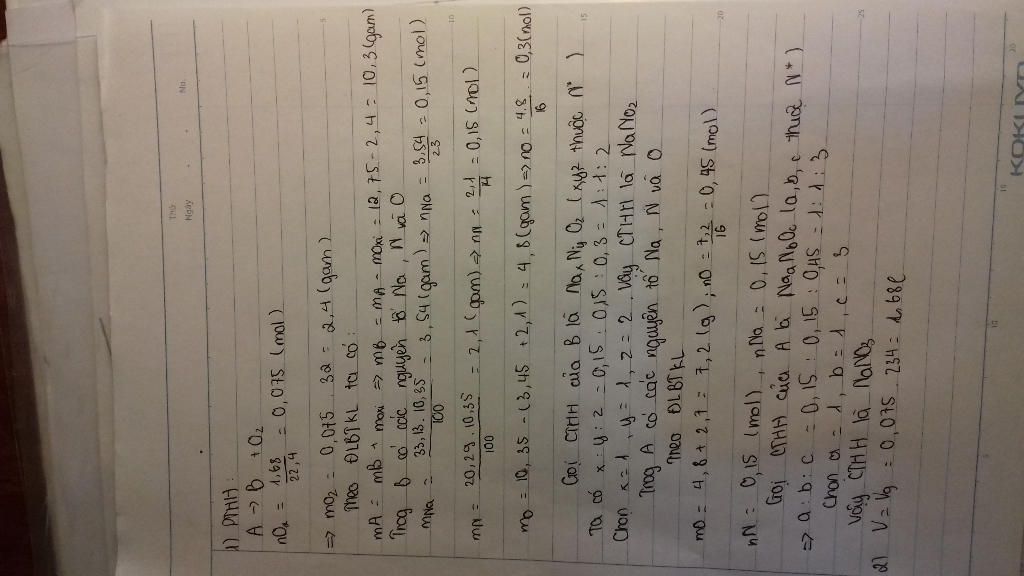 Thứ
Ngày
No.
1) PTHH:
A → B + O2
nO2 = 1,68/22,4 = 0,075 (mol)
=> mO2 = 0,075 . 32 = 2,4 (gam)
Theo ĐLBTKL ta có:
mA = mB + mO2 => mB = mA - mO2 = 12,75 - 2,4 = 10,3 (gam)
Trog B có các nguyên tố Na, N và O
mNa = 33,13.10,35/100 = 3,54 (gam) => nNa = 3,54/23 = 0,15 (mol)
mN = 20,29.10,35/100 = 2,1 (gam) => nN = 2,1/4 = 0,15 (mol)
mO = 10,35 - (3,45 + 2,1) = 4,8 (gam) => nO = 4.8/16 = 0,3 (mol)
Gọi CTHH của B là NaxNyOz (xyz thuộc N* )
Ta có x : y : z = 0,15 : 0,15 : 0,3 = 1 : 1 : 2
Chọn x = 1, y = 1, z = 2. Vậy CTHH là NaNO2
Trog A có các nguyên tố Na, N và O
Theo ĐLBTKL
mO = 4,8 + 2,7 = 7,2 (g) ; nO = 7,2/16 = 0,45 (mol)
nN = 0,15 (mol), nNa = 0,15 (mol)
Gọi CTHH của A là NaaNbOc (a, b, c thuộ N*)
=> a : b : c = 0,15 : 0,15 : 0,45 = 1 : 1 : 3
Chọn a = 1, b = 1, c = 3
Vậy CTHH là NaNO3
2) V = Vg = 0,075 . 234 = 1.68l
KOKUYO